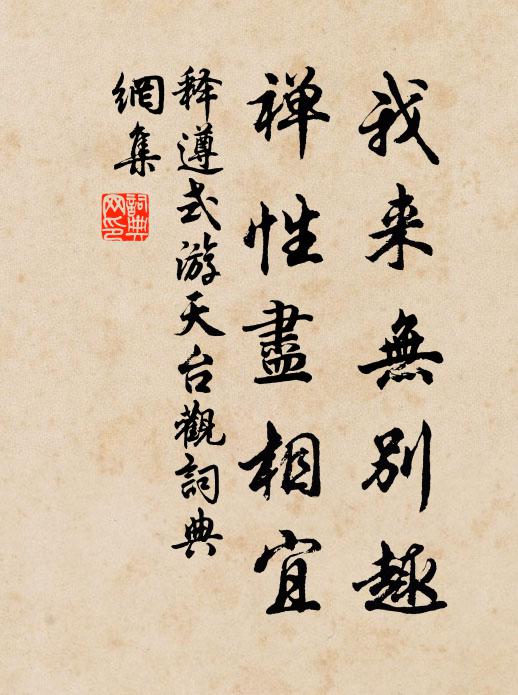 我来無別趣
禅性盡相宜
释遵式游天台觀詞典
網集
詞典
网印